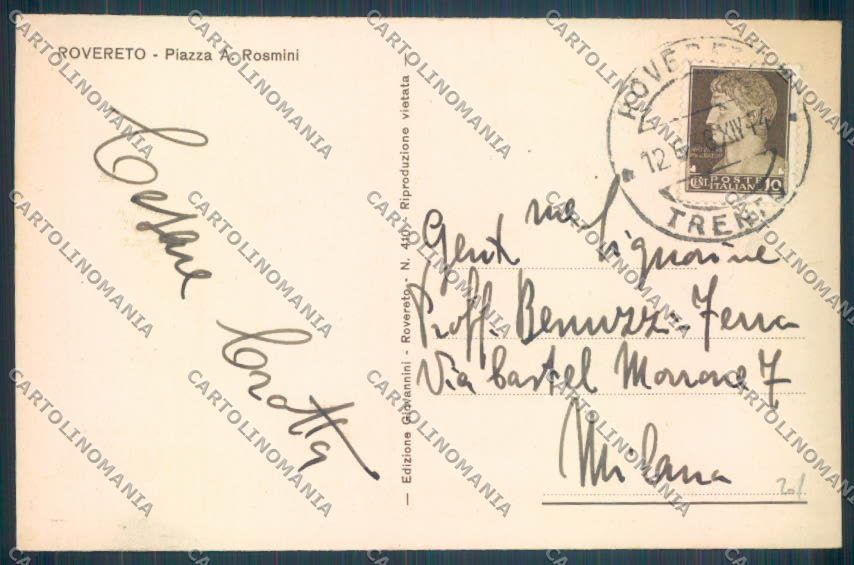 ROVERETO - Piazza A. Rosmini
Cesare Crotta
— Edizione Giovannini - Rovereto - N. 410 - Riproduzione vietata —
ROVERETO
12. 6 XIV-P4
TRENTO
POSTE
CENT. ITALIANE 10
Gent.me Signorine
Proff. Benuzzi - Ferra
Via Castel Morrone 7
Milano
CARTOLINOMANIA